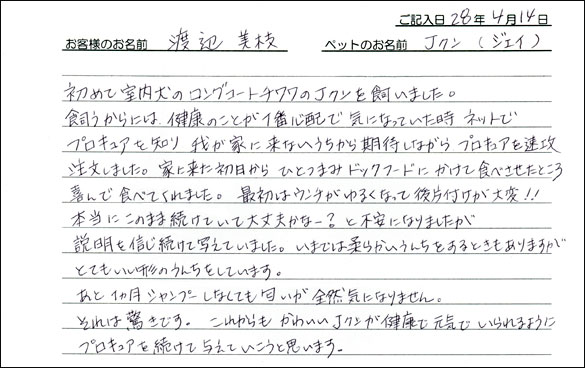 ご記入日 28年 4月14日
お客様のお名前 渡辺 美枝 ペットのお名前 Jクン(ジェイ)
初めて室内犬のロングコートチワワのJクンを飼いました。
飼うからには、健康のことが1番心配で気になっていた時 ネットで
プロキュアを知り 我が家に来ないうちから期待しながら プロキュアを速攻
注文しました。家に来た初日から ひとつまみドックフードにかけて食べさせたところ
喜んで食べてくれました。最初はウンチがゆるくなって後片付けが大変!!
本当にこのまま続けていて大丈夫かなー?と不安になりましたが
説明を信じ続けて与えていました。いまでは柔らかいうんちをするときもありますが
とてもいい形のうんちをしています。
あと1ヵ月シャンプーしなくても匂いが全然気になりません。
それは驚きです。これからも かわいいJクンが健康で元気でいられるように
プロキュアを続けて与えていこうと思います。